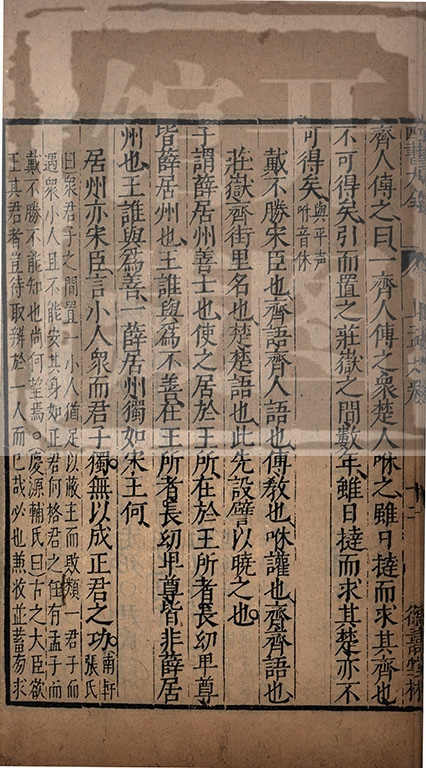 齊人傅之曰一齊人傅之衆楚人咻之雖日撻而求其齊也
不可得矣引而置之莊嶽之閒數年雖日撻而求其楚亦不
可得矣與平声咻音休
戴不勝宋臣也齊語齊人語也傅教也咻讙也齊齊語也
莊嶽齊街里名也楚楚語也此先設譬以曉之也
子謂薛居州善士也使之居於王所在於王所者長幼卑尊
皆薛居州也王誰與爲不善在王所者長幼卑尊皆非薛居
州也王誰與爲善一薛居州獨如宋王何
居州亦宋臣言小人衆而君子獨無以成正君之功南軒張氏
曰衆君子之間置一小人猶足以蔽主而敗類一君子而
遇衆小人且不能安其身如正君何格君之任有孟子而
戴不勝不能知也尚何望焉○慶源輔氏曰古之大臣欲
正其君者豈待取辦於一人而已哉必也兼收並蓄旁求